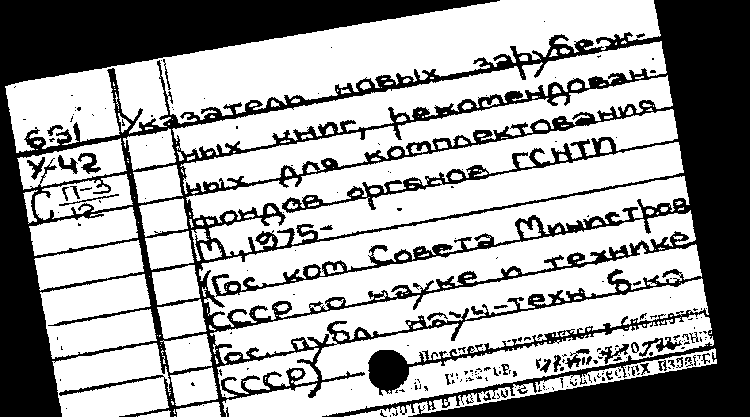 631
У-42
С П-3
12
Указатель новых зарубеж-
ных книг, рекомендован-
ных для комплектования
фондов органов ГСНТП
М., 1975-
(Гос. ком. Совета Министров
СССР по науке и технике
Гос. публ. науч.-техн. б-ка
СССР)
Перечень имеющихся в библиотеке
смотри в каталоге